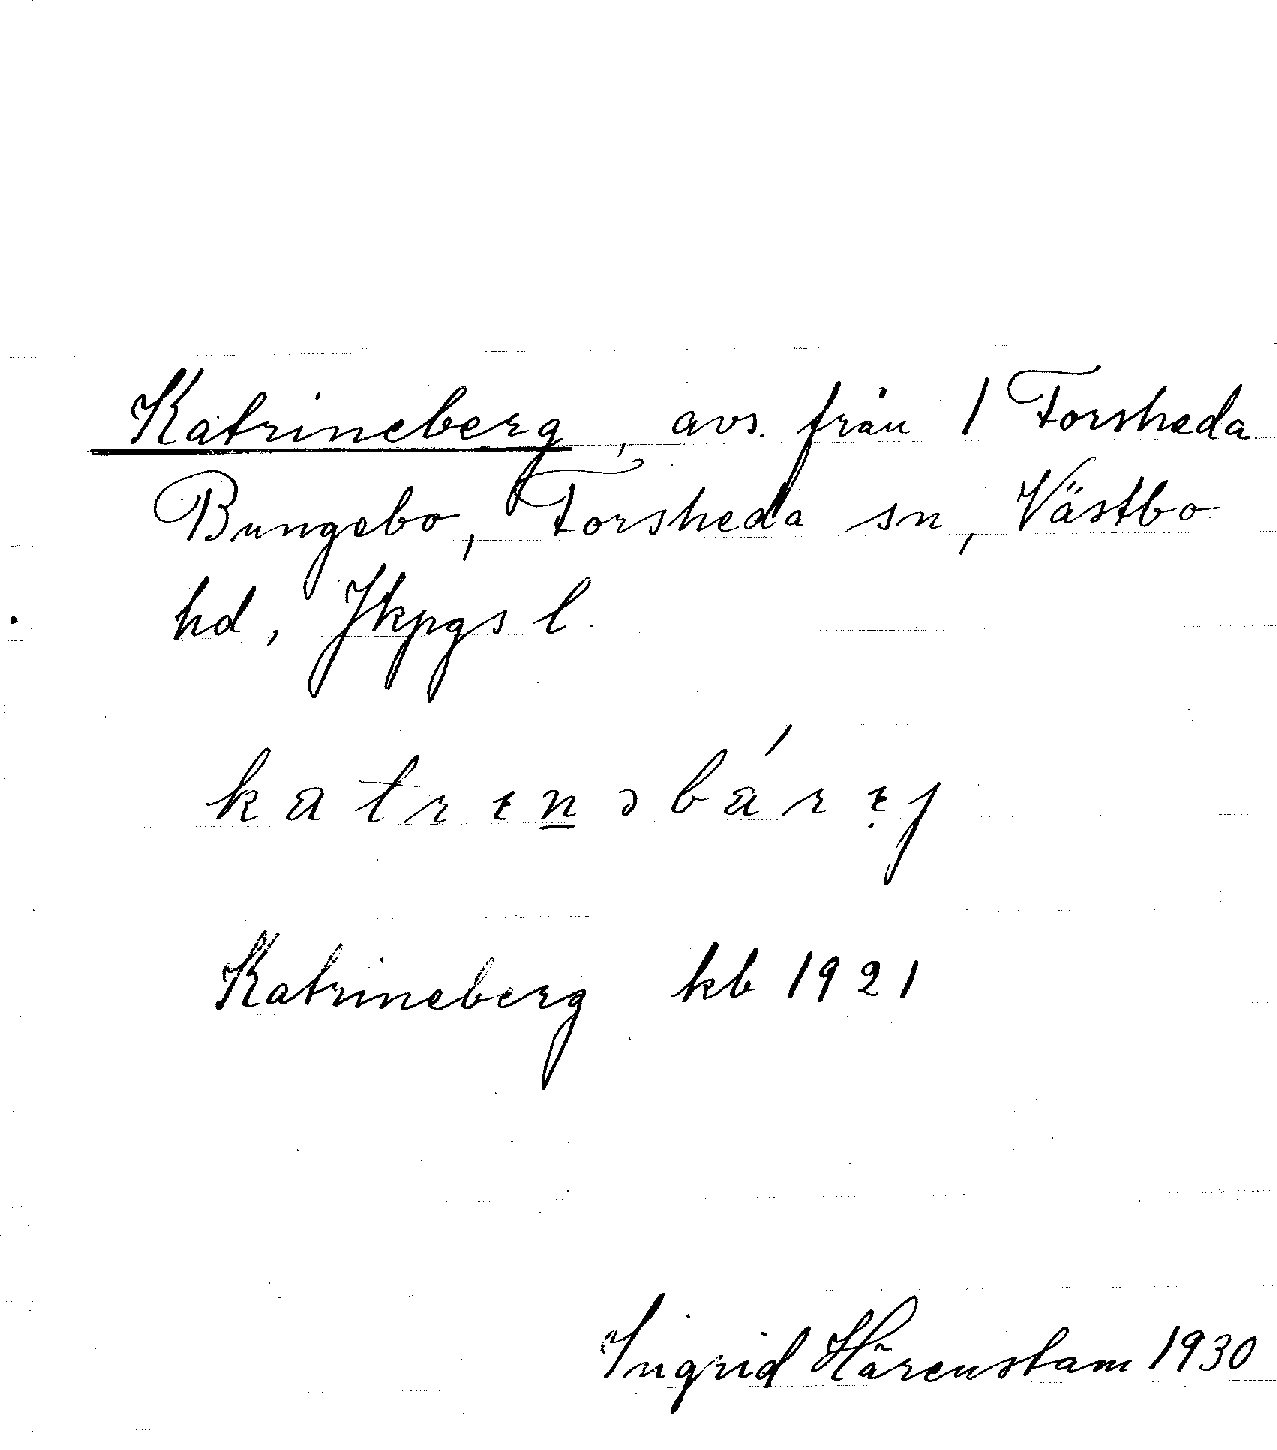 Katrineberg, avs. från 1 Torsheda
Bungebo, Torsheda sn, Västbo
hd, Jkpgs l.
Katrineberg kb 1921
Ingrid Härenstam 1930